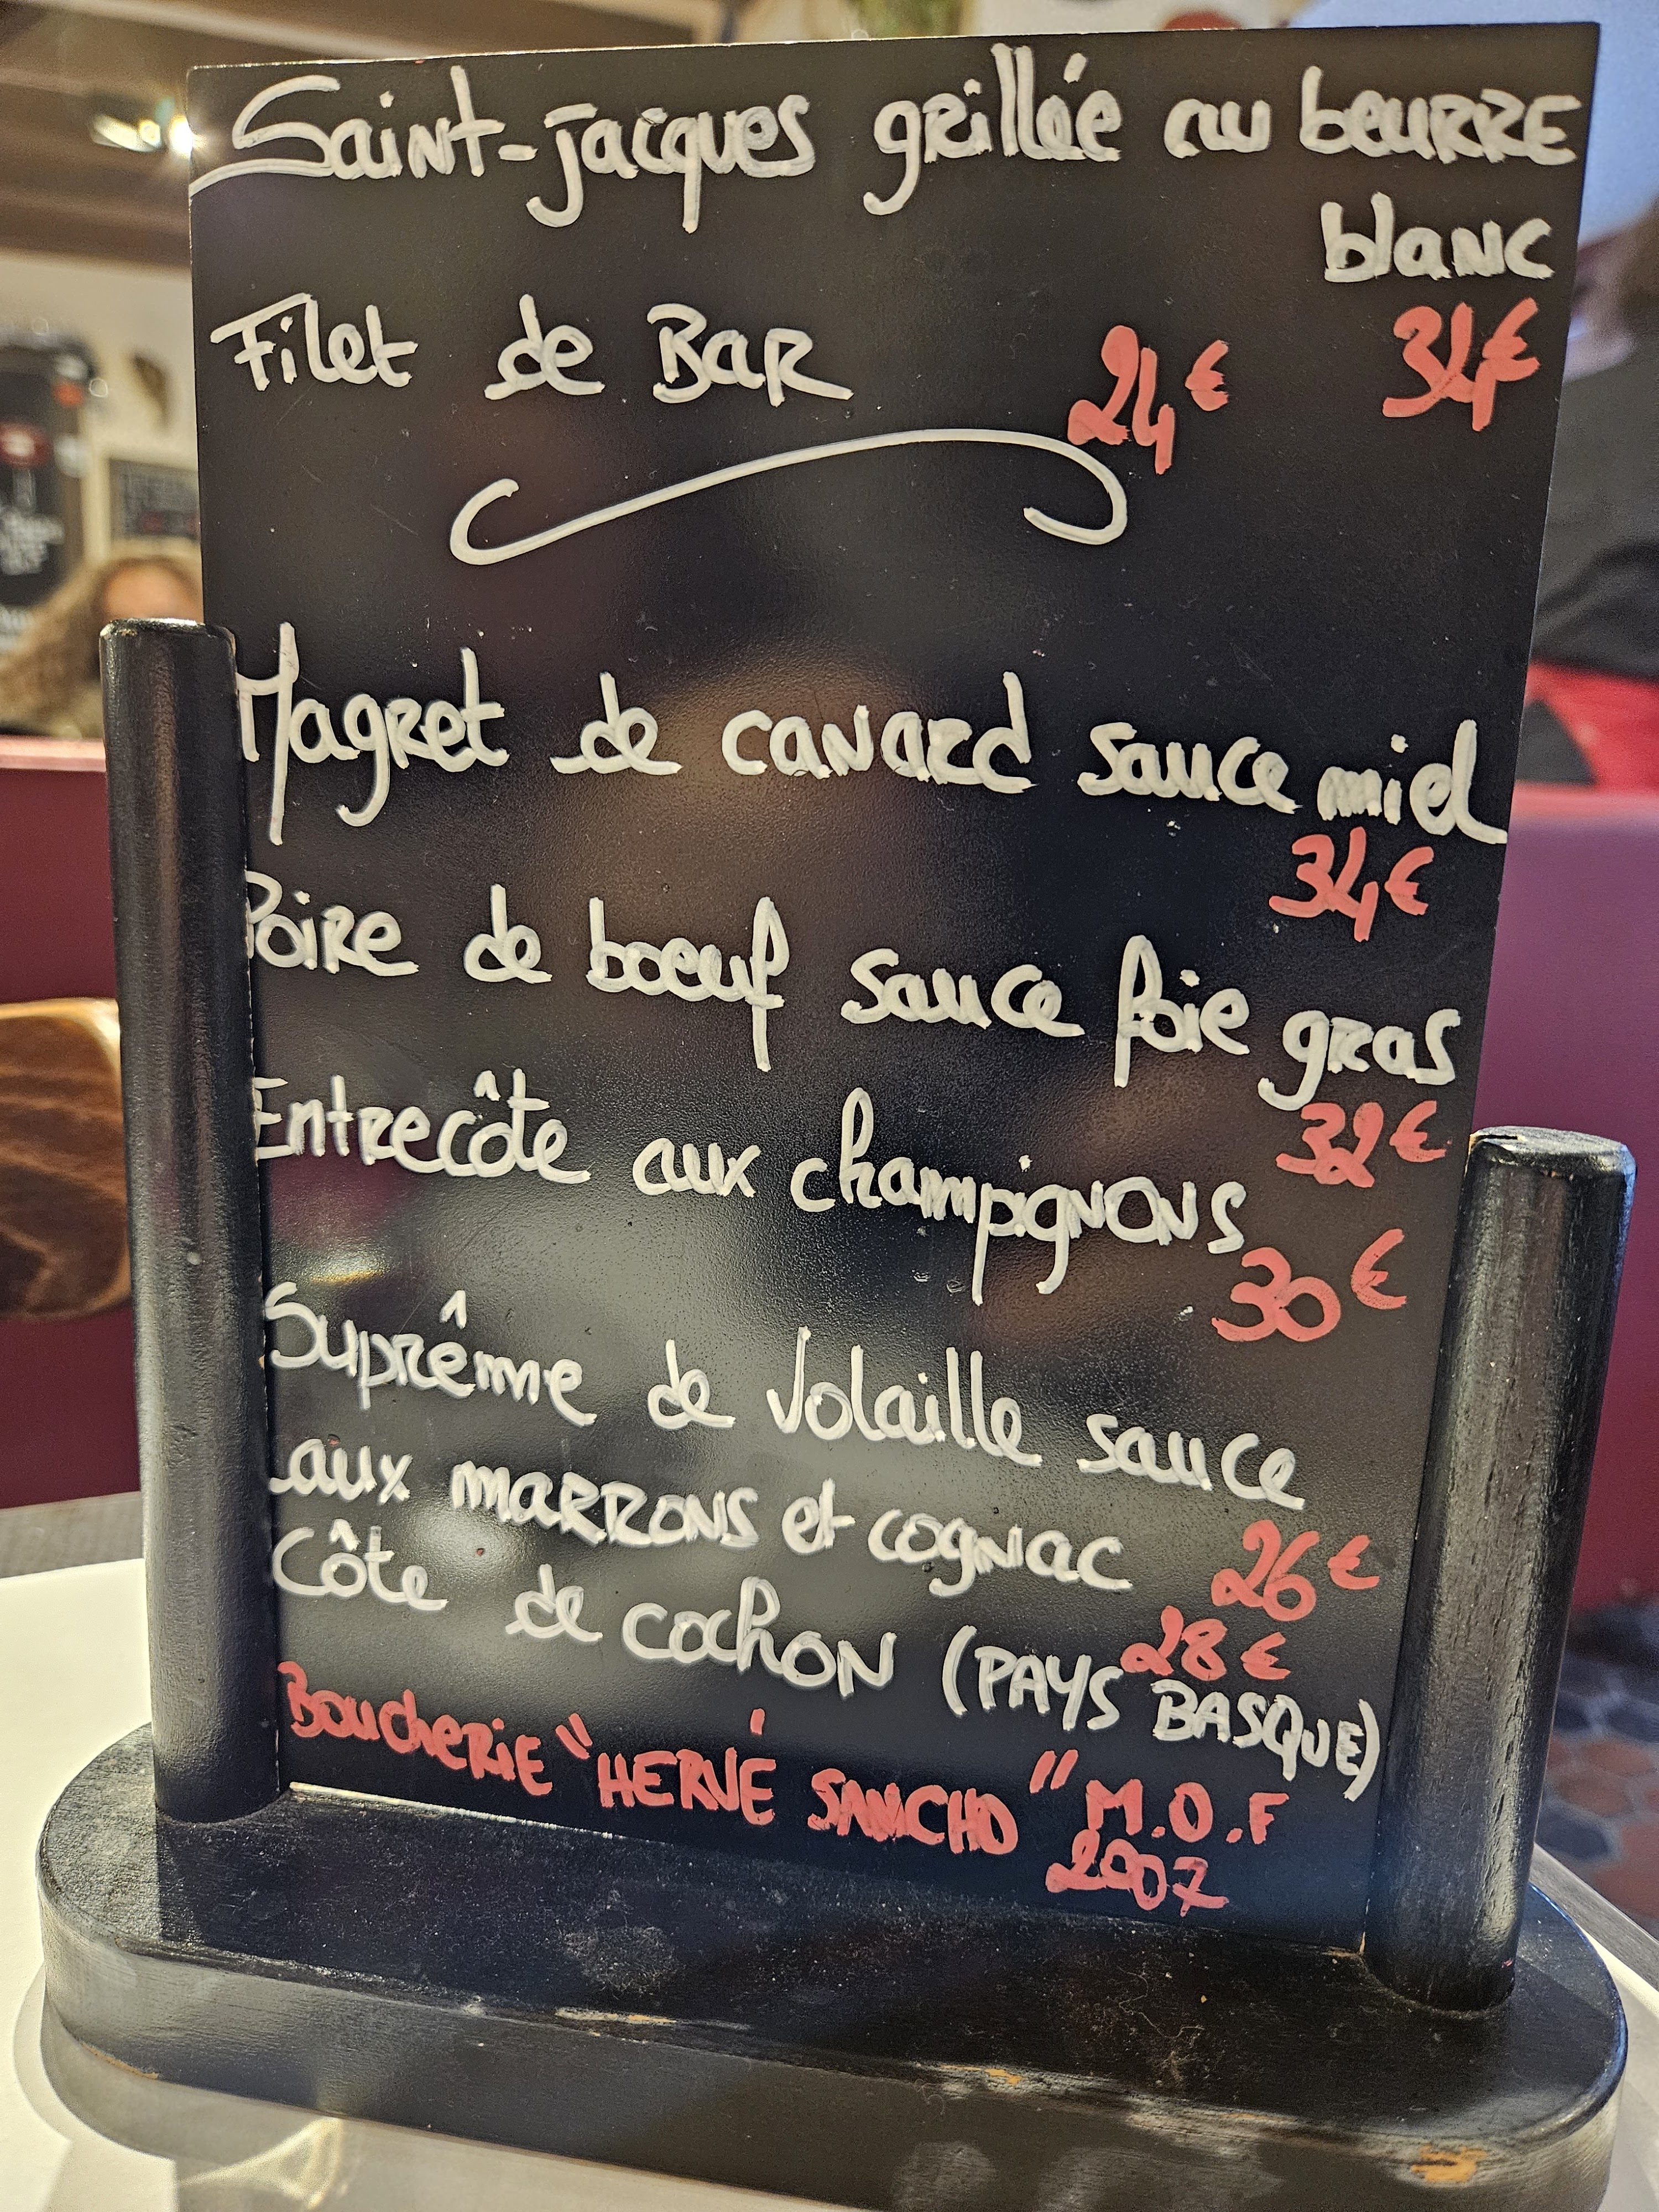 Saint-jacques grillée au beurre
blanc
34€
Filet de Bar 24€
Magret de canard sauce miel
34€
Poire de boeuf sauce foie gras
32€
Entrecôte aux champignons
30€
Suprême de Volaille sauce
aux marrons et cognac 26€
28€
Côte de cochon (PAYS BASQUE)
Boucherie "HERVÉ SANCHO" M.O.F
2007